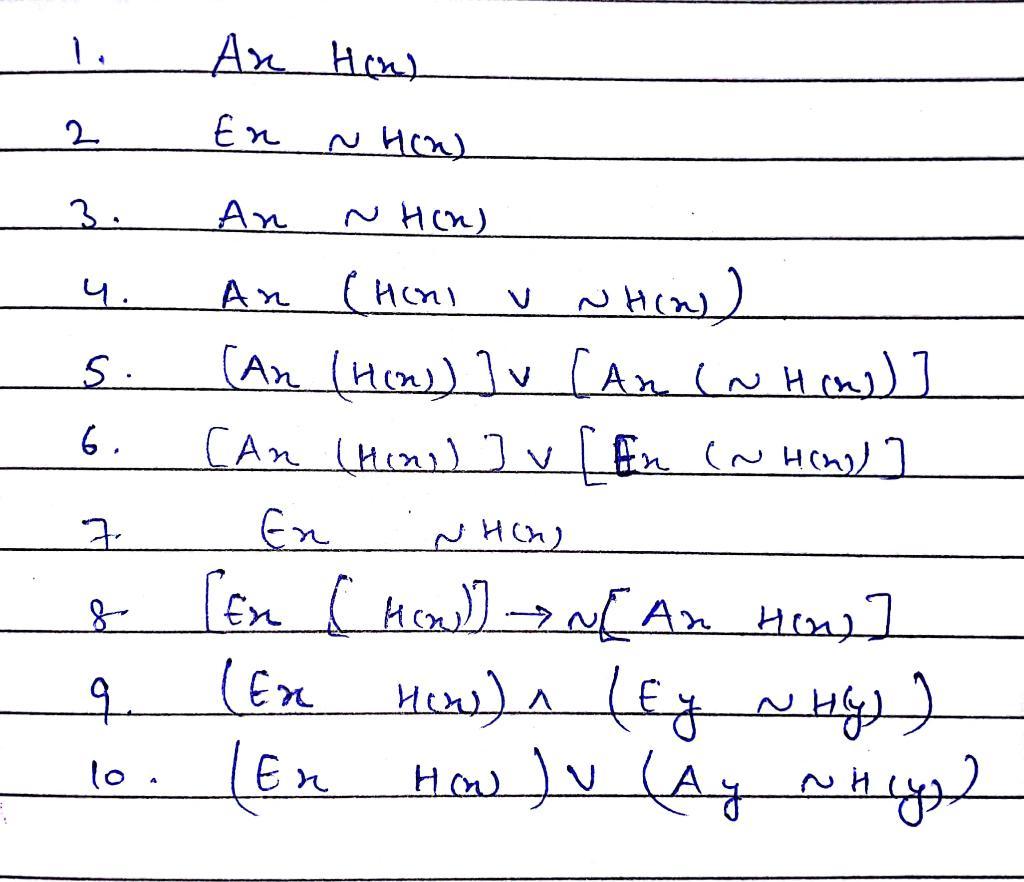 1. Ax H(x)
2 Ex ~ H(x)
3. Ax ~ H(x)
4. Ax (H(x) v ~ H(x))
5. [Ax (H(x))] v [Ax (~ H(x))]
6. [Ax (H(x))] v [Ex (~ H(x))]
7. Ex ~ H(x)
8 [Ex ( H(x))] → ~[ Ax H(x)]
9. (Ex H(x)) ∧ (Ey ~ H(y))
10. (Ex H(x)) v (Ay ~ H(y))